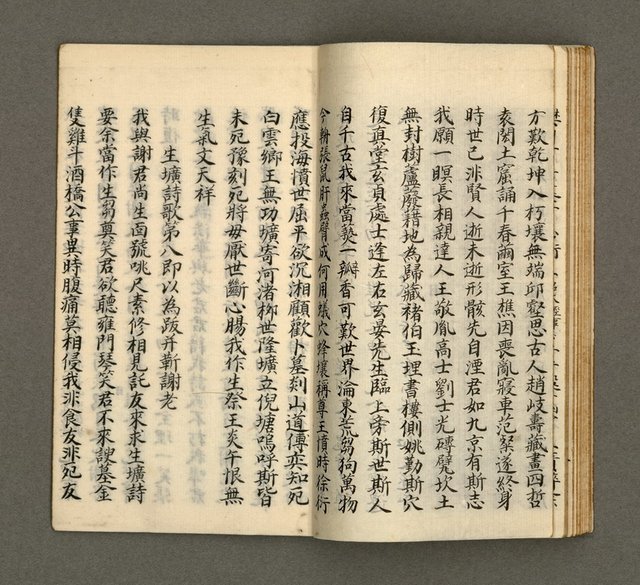 方歎乾坤入朽壤無端邱壑思古人趙岐壽藏畫四哲
袁閎土窟誦千春兩室王樵因喪亂寢車范粲遂終身
時世已非賢人逝未逝形骸先自湮君如九京有斯志
我願一瞑長相親達人王敬胤高士劉士光磚甓坎土
無封樹廬廢藉地為歸藏褚伯玉埋書樓側姚勖斯穴
復真堂玄貞處士逄左右玄晏先生臨上帝斯世斯人
自千古我來當爇一瓣香可歎世界淪東荒芻狗萬物
今粉張鼠肝蟲臂成何用蟻穴蜂壤稱尊王憤時徐衍
應投海憤世屈平欲沉湘顧歡卜墓剡山道傅奕知死
白雲鄉王無功壙寄河渚柳世隆壙立倪塘嗚呼斯皆
未死豫刻死將毋厭世斷心腸我作生祭王炎午恨無
生氣文天祥
生壙詩歌第八即以為跋并蘄謝老
我與謝君尚生面號咷尺素修相見託友來求生壙詩
要余當作生芻奠笑君欲聽雍門琴笑君不來諛墓金
隻雞斗酒橋公事異時腹痛莫相侵我非食友非死友